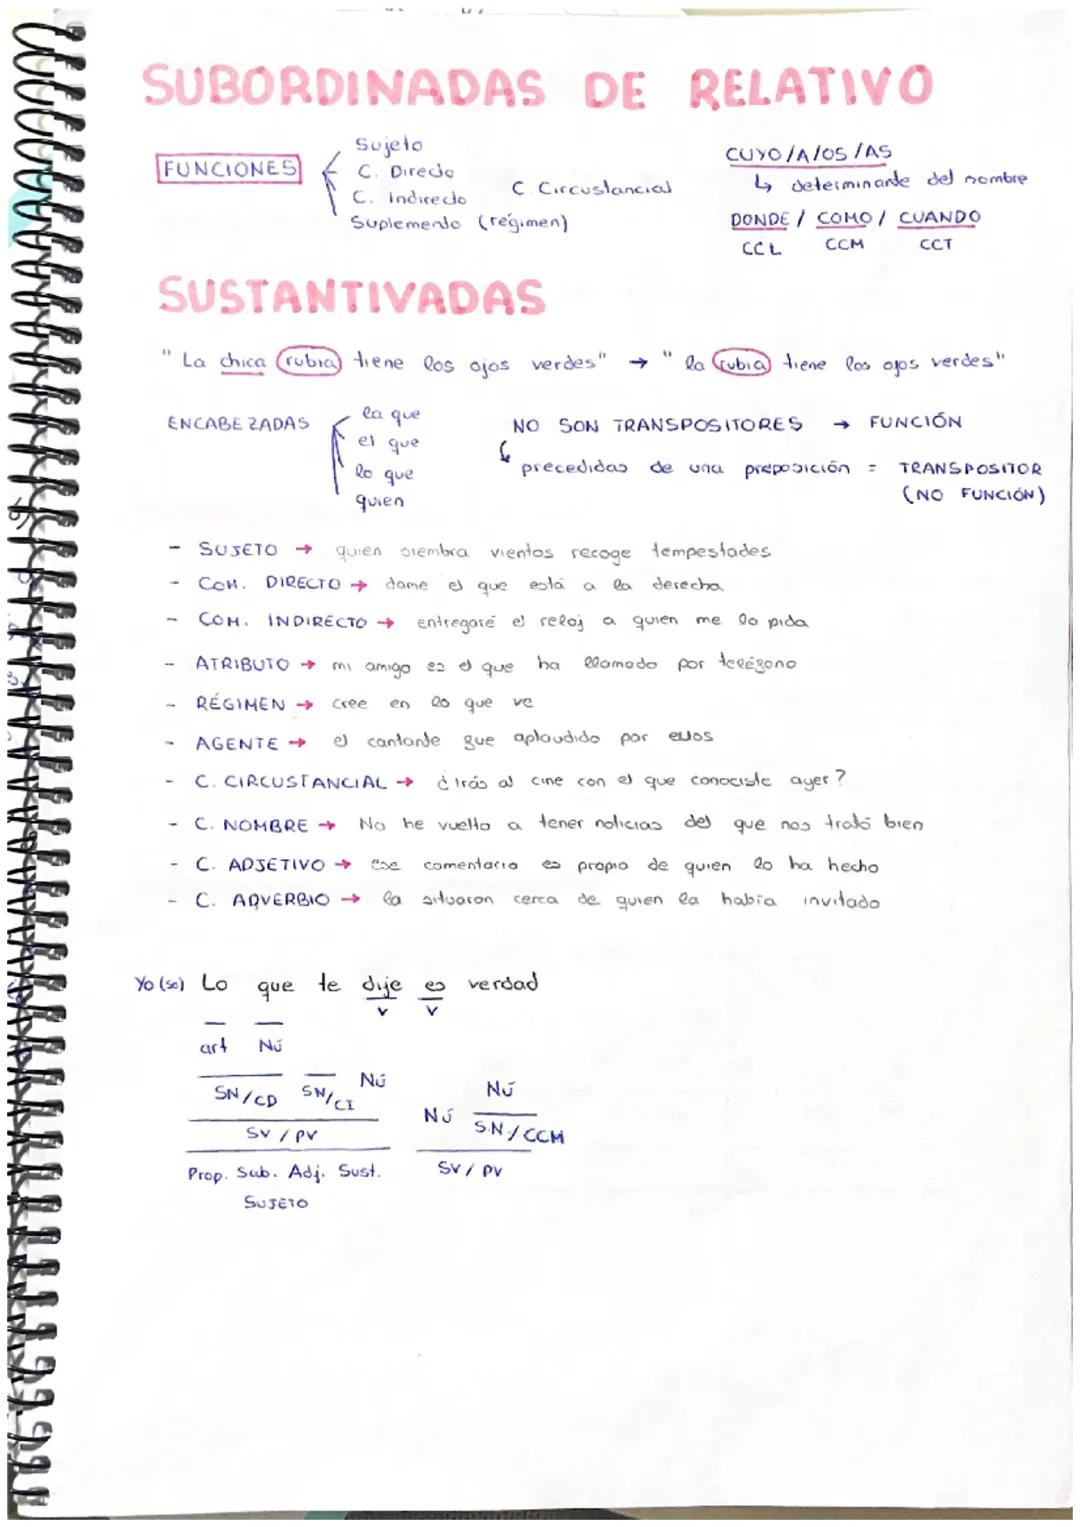 SUBORDINADAS DE RELATIVO
FUNCIONES
Sujeto
C. Directo
C. Indirecto
Suplemento (régimen)
C. Circustancial
CUYO/A/OS/AS
↳ determinante del nombre
DONDE / COMO / CUANDO
CCL CCM CCT
SUSTANTIVADAS
"La chica rubia tiene los ojos verdes" → "la rubia tiene los ojos verdes"
ENCABEZADAS
la que
el que
lo que
quien
NO SON TRANSPOSITORES → FUNCIÓN
↳ precedidas de una preposición = TRANSPOSITOR
(NO FUNCIÓN)
- SUJETO → quien siembra vientos recoge tempestades
- COM. DIRECTO → dame el que está a la derecha
- COM. INDIRECTO → entregaré el reloj a quien me lo pida
- ATRIBUTO → mi amigo es el que ha llamado por teléfono
- RÉGIMEN → cree en lo que ve
- AGENTE → el cantante fue aplaudido por ellos
- C. CIRCUSTANCIAL → ¿irás al cine con el que conociste ayer?
- C. NOMBRE → No he vuelto a tener noticias del que nos trató bien
- C. ADJETIVO → ese comentario es propio de quien lo ha hecho
- C. ADVERBIO → la situaron cerca de quien la había invitado
Yo (so) Lo que te dije es verdad
V V
art Nú
SN/CD SN/CI Nú
Nú
Nú S.N/CCM
SV / PV
SV / PV
Prop. Sub. Adj. Sust.
SUJETO